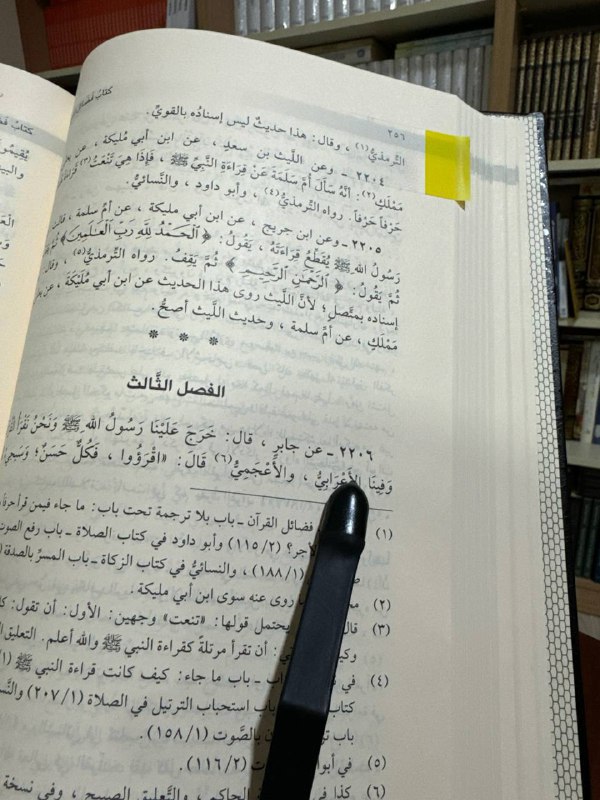 ٢٥٦
كتاب فضائل
الترمذيُّ(١) ، وقال: هذا حديثٌ ليس إسنادُه بالقويِّ.
٢٢٠٤ - وعن اللَّيث بن سعدٍ، عن ابن أبي مُليكة، عن
مَمْلَكٍ(٢). أنَّهُ سَأَلَ أمَّ سَلَمَةَ عَنْ قِرَاءَةِ النَّبِيِّ ﷺ ، فَإِذَا هِيَ تَنْعَتُ(٣) قِرَاءَةً
حَرْفاً حَرْفاً. رواه التِّرمذيُّ(٤)، وأبو داود ، والنَّسائيُّ.
٢٢٠٥ - وعن ابن جريج ، عن ابن أبي مليكة ، عن أمِّ سلمة ، قالت
رَسُولُ اللهِ ﷺ يُقَطِّعُ قِرَاءَتَهُ ، يَقُولُ: ﴿ الْحَمْدُ لِلَّهِ رَبِّ الْعَلَمِينَ﴾ ثُمَّ
ثُمَّ يَقُولُ: ﴿ الرَّحْمَنِ الرَّحِيمِ ﴾ ثُمَّ يَقِفُ. رواه التِّرمذيُّ(٥) ، وقال
إسناده بمتَّصلٍ؛ لأنَّ اللَّيث روى هذا الحديث عن ابن أبي مُلَيْكَةَ ، عن
مَمْلَكٍ ، عن أمِّ سلمة ، وحديث اللَّيث أصحُّ.
* * *
الفصل الثَّالث
٢٢٠٦ - عن جابرٍ ، قال: خَرَجَ عَلَيْنَا رَسُولُ اللهِ ﷺ وَنَحْنُ نَقْرَأُ
وَفِينَا الأَعْرَابِيُّ ، والأَعْجَمِيُّ(٦) قَالَ: «اقْرَؤُوا ، فَكُلٌّ حَسَنٌ؛ وَسَيَجِيءُ
(١) فضائل القرآن - باب بلا ترجمة تحت باب: ما جاء فيمن قرأ حرفاً
(٢/ ١١٥) وأبو داود في كتاب الصلاة - باب رفع الصوت
(١/ ١٨٨) ، والنسائيُّ في كتاب الزكاة - باب المسرِّ بالصدقة
(٢) روى عنه سوى ابن أبي مليكة.
(٣) يحتمل قولها: «تنعت» وجهين: الأول: أن تقول:
أن تقرأ مرتلةً كقراءة النبي ﷺ والله أعلم. التعليق
(٤) باب ما جاء: كيف كانت قراءة النبي ﷺ
كتاب باب استحباب الترتيل في الصلاة (١/ ٢٠٧)
باب بالصَّوت (١/ ١٥٨).
(٥) في (٢/ ١١٦).
(٦) كذا في الحاكم ، والتَّعليق الصبيح ، وفي نسخة